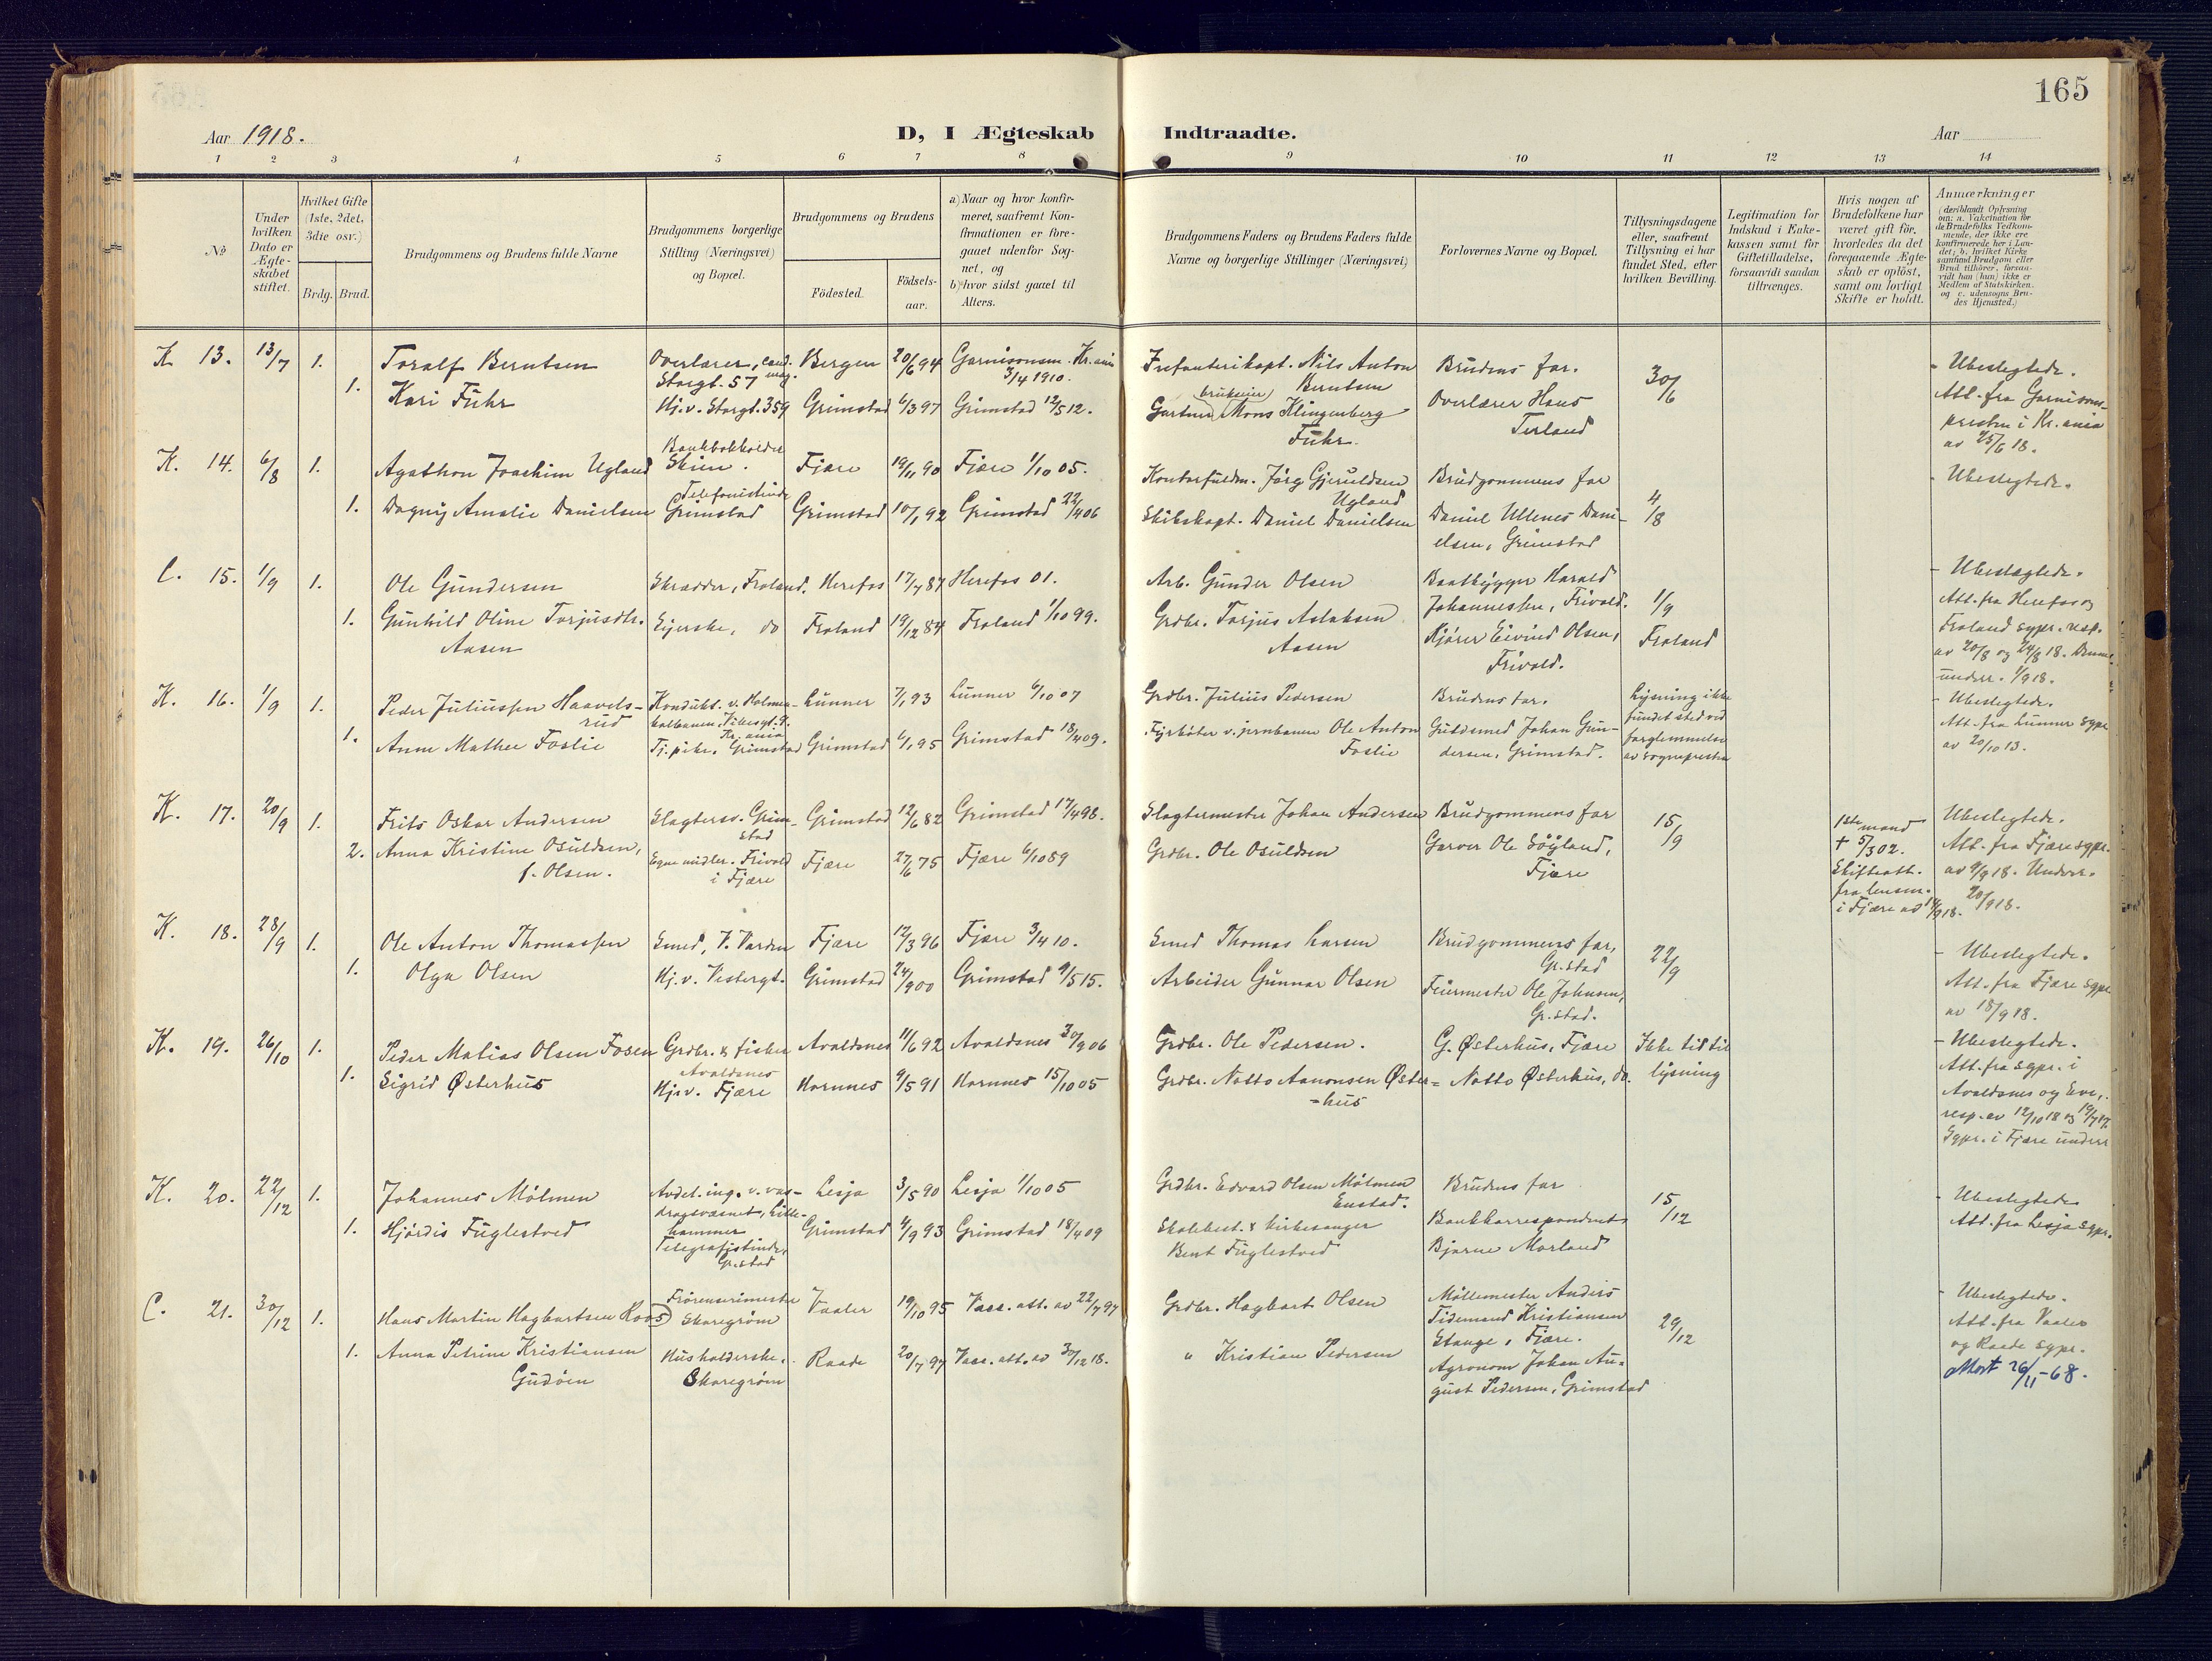 165
Aar 1918.
D, I Ægteskab Indtraadte.
Aar
1 2 3 4 5 6 7 8 9 10 11 12 13 14
No
Under hvilken Dato er Ægteskabet stiftet.
Hvilket Gifte (1ste, 2det, 3die osv.)
Brdg. Brud.
Brudgommens og Brudens fulde Navne
Brudgommens borgerlige Stilling (Næringsvei) og Bopæl.
Brudgommens og Brudens
Födested.
Födsels-aar.
a) Naar og hvor konfirmeret, saafremt Konfirmationen er foregaaet udenfor Sognet, og
b) hvor sidst gaaet til Alters.
Brudgommens Faders og Brudens Faders fulde Navne og borgerlige Stillinger (Næringsvei)
Forlovernes Navne og Bopæl.
Tillysningsdagene eller, saafremt Tillysning ei har fundet Sted, efter hvilken Bevilling.
Legitimation for Indskud i Enkekassen samt for Giftetilladelse, forsaavidt saadan tiltrænges.
Hvis nogen af Brudefolkene har været gift för, hvorledes da det foregaaende Ægteskab er oplöst, samt om lovligt Skifte er holdt.
Anmærkninger
(deriblandt Oplysning om: a. Vakcination for de Brudefolks Vedkommende, der ikke ere konfirmerede her i Landet; b. hvilket Kirkesamfund Brudgom eller Brud tilhörer, forsaavidt han (hun) ikke er Medlem af Statskirken. og c. udensogns Brudes Hjemsted.)
K. 13. 13/7 1. Toralf Berntsen Overlærer, cand. mag. Storgt. 57 Bergen 20/6 94 Garnisonsm. Kr.ania 3/4 1910. Infanterikapt. Nils Anton Berntsen Brudens far. 30/6 - Ubeslegtede.
1. Kari Fuhr Hj.v. Storgt. 359 Grimstad 6/3 97 Grimstad 12/5 12. Gartner (brukeier) Mons Klingenberg Fuhr. Overlærer Hans Terland Att. fra Garnisonspresten i Kr.ania av 25/6 18.
K. 14. 6/8 1. Agathon Joachim Ugland Bankbokholder Skien. Fjære 19/11 90 Fjære 1/10 05. Kontorfuldm. Jörg Gjeruldsen Ugland Brudgommens far 4/8 - Ubeslegtede.
1. Dagny Amalie Danielsen Telefonistinde Grimstad Grimstad 10/1 92 Grimstad 22/4 06 Skibskapt. Daniel Danielsen Daniel Ullenes Danielsen, Grimstad
C. 15. 1/9 1. Ole Gundersen Skrædder, Froland. Herefos 17/7 87 Herefos 01. Arb. Gunder Olsen Baatbygger Harald Johannessen, Frivold. 1/9 Froland - Ubeslægtede.
1. Gunhild Oline Torjusdtr. Aasen Eierske, do Froland 19/12 84 Froland 1/10 99. Grdbr. Torjus Aslaksen Aasen Kjörer Eivind Olsen, Frivold. Att. fra Herefos og Froland sgpr. resp. av 20/8 og 24/8 18. Denne underr. 1/9 18.
K. 16. 1/9 1. Peder Juliussen Haavelsrud Kondukt. v. Holmenkolbanen, Kr.ania Lunner 7/1 93 Lunner 6/10 07 Grdbr. Julius Pedersen Brudens far. Lysning ikke fundet sted ved forglemmelse av sognepresten - Ubeslegtede.
1. Anne Mathee Foslie Tj.pike, Grimstad Grimstad 6/1 95 Grimstad 18/4 09. Fyrböter v. jernbanen Ole Anton Foslie Guldsmed Johan Gundersen, Grimstad. Att. fra Lunner sgpr av 20/10 13.
K. 17. 20/9 1. Frits Oskar Andersen Slagtersv. Grimstad Grimstad 12/6 82 Grimstad 17/4 98. Slagtermester Johan Andersen Brudgommens far 15/9 1ste mand + 5/3 02. Skifteatt. fra lensm. i Fjære av 14/9 18. Ubeslegtede.
2. Anna Kristine Osuldsen, f. Olsen. Egne midler. Frivold i Fjære Fjære 27/6 75 Fjære 6/10 89 Grdbr. Ole Osuldsen Garver Ole Söyland, Fjære Att. fra Fjære sgpr. av 9/9 18. Underr. 20/9 18.
K. 18. 28/9 1. Ole Anton Thomassen Smed, V. Varden Fjære 12/3 96 Fjære 3/4 10. Smed Thomas Larsen Brudgommens far, Gr.stad 22/9 - Ubeslegtede.
1. Olga Olsen Hj.v. Vestergt. Grimstad 24/9 00 Grimstad 9/5 15. Arbeider Gunnar Olsen Feiermester Ole Johnsen, Gr.stad. Att. fra Fjære sgpr av 18/9 18.
K. 19. 26/10 1. Peder Matias Olsen Fosen Grdbr. & fisker Avaldsnes Avaldsnes 11/6 92 Avaldsnes 30/9 06 Grdbr. Ole Pedersen. G. Østerhus, Fjære Ikke tid til lysning - Ubeslegtede.
1. Sigrid Østerhus Hj.v. Fjære Hornnes 9/5 91 Hornnes 15/10 05 Grdbr. Notto Aanonsen Øster=hus Notto Østerhus, do. Att. fra sgpr. i Avaldsnes og Evje, resp. av 12/10 18 og 19/7 17. Sgpr. i Fjære underr
K. 20. 22/12 1. Johannes Mölmen Avdel.ing. v. vasdragsvæsnet, Lillehammer Lesja 3/5 90 Lesja 1/10 05 Grdbr. Edvard Olsen Mölmen Enstad. Brudens far 15/12 - Ubeslegtede
1. Hjördis Fuglestved Telegrafistinde, Gr.stad Grimstad 4/9 93 Grimstad 18/4 09 Skolebest. & kirkesanger Bent Fuglestved Bankkorrespondent Bjarne Morland Att. fra Lesja sgpr.
C. 21. 30/12 1. Hans Martin Hagbartsen Roos Skaregröm Vaaler 19/10 95 Vacc. att. av 22/7 97 Grdbr. Hagbart Olsen Möllemester Anders Tidemand Kristiansen Stange, Fjære. 29/12 - Ubeslegtede.
1. Anna Petrine Kristiansen Gudöen Husholderske, Skaregröm Raade 20/7 97 Vacc. att. av 30/12 18. " Kristian Pedersen Agronom Johan August Pedersen, Grimstad Att. fra Vaaler og Raade sgpr.
Attest 26/11-68.